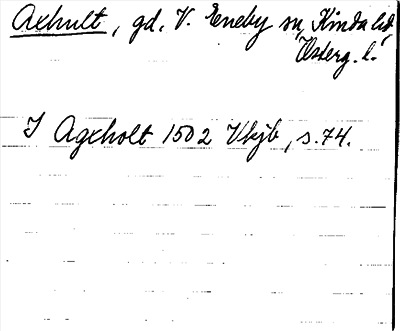 Axhult, gd, V. Eneby sn, Kinda hd,
Österg. l.
I Agxholt 1502 Vkjb, s. 74.